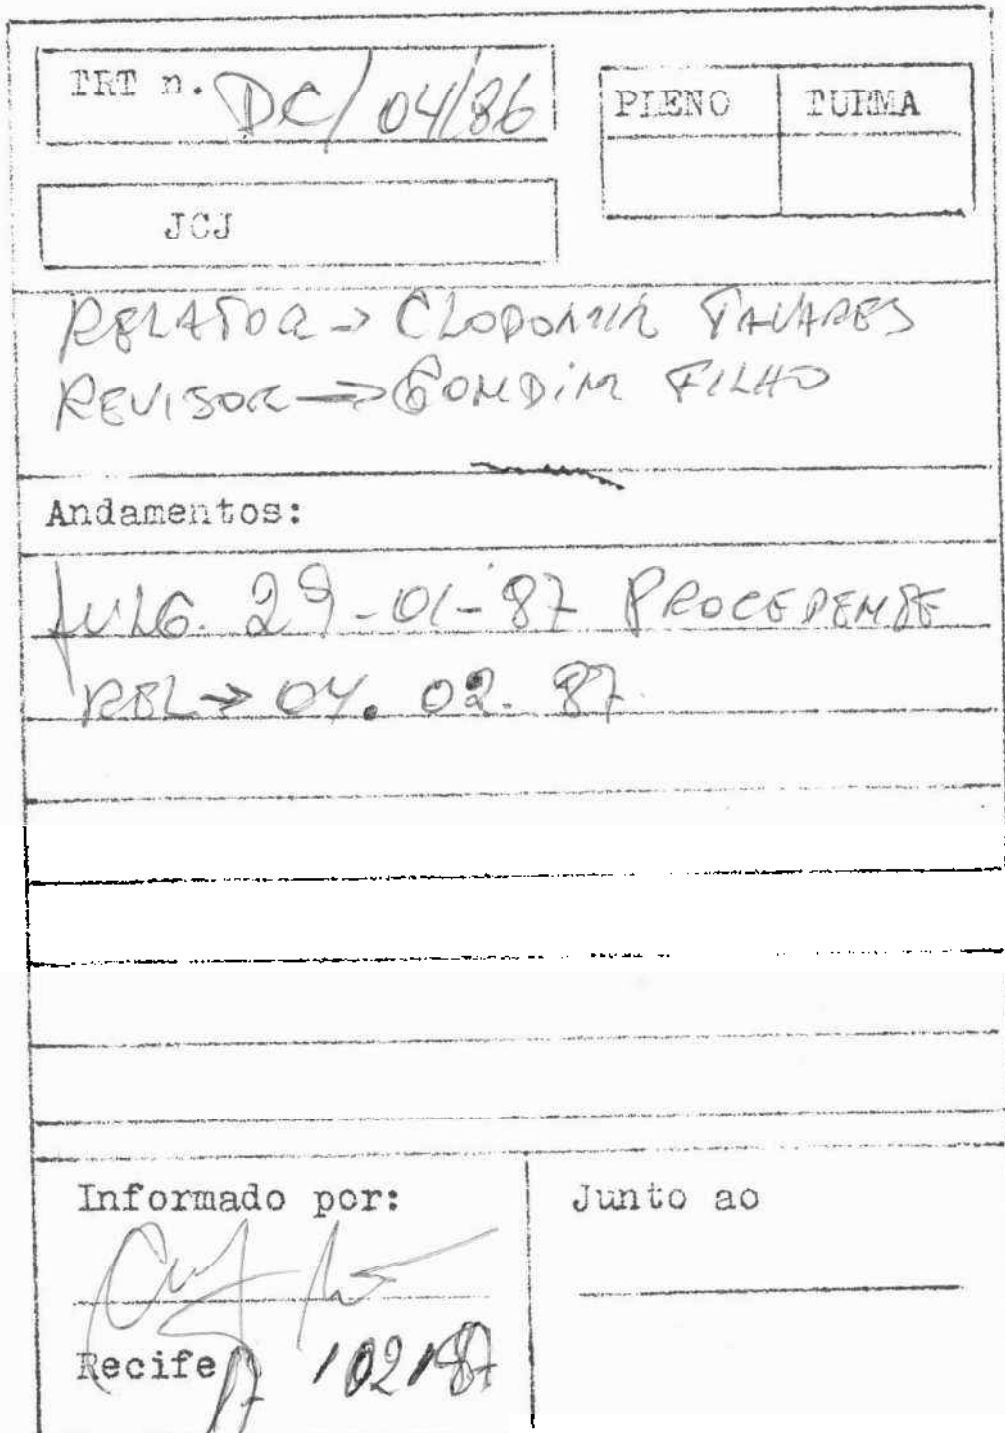 TRT n. DC/04/86
PLENO TURMA
JCJ
RELATOR → CLODOMIR TAVARES
REVISOR → GONDIM FILHO
Andamentos:
JULG. 29-01-87 PROCEDENTE
REL → 04.02.87
Informado por:
Junto ao
Recife 17/02/87